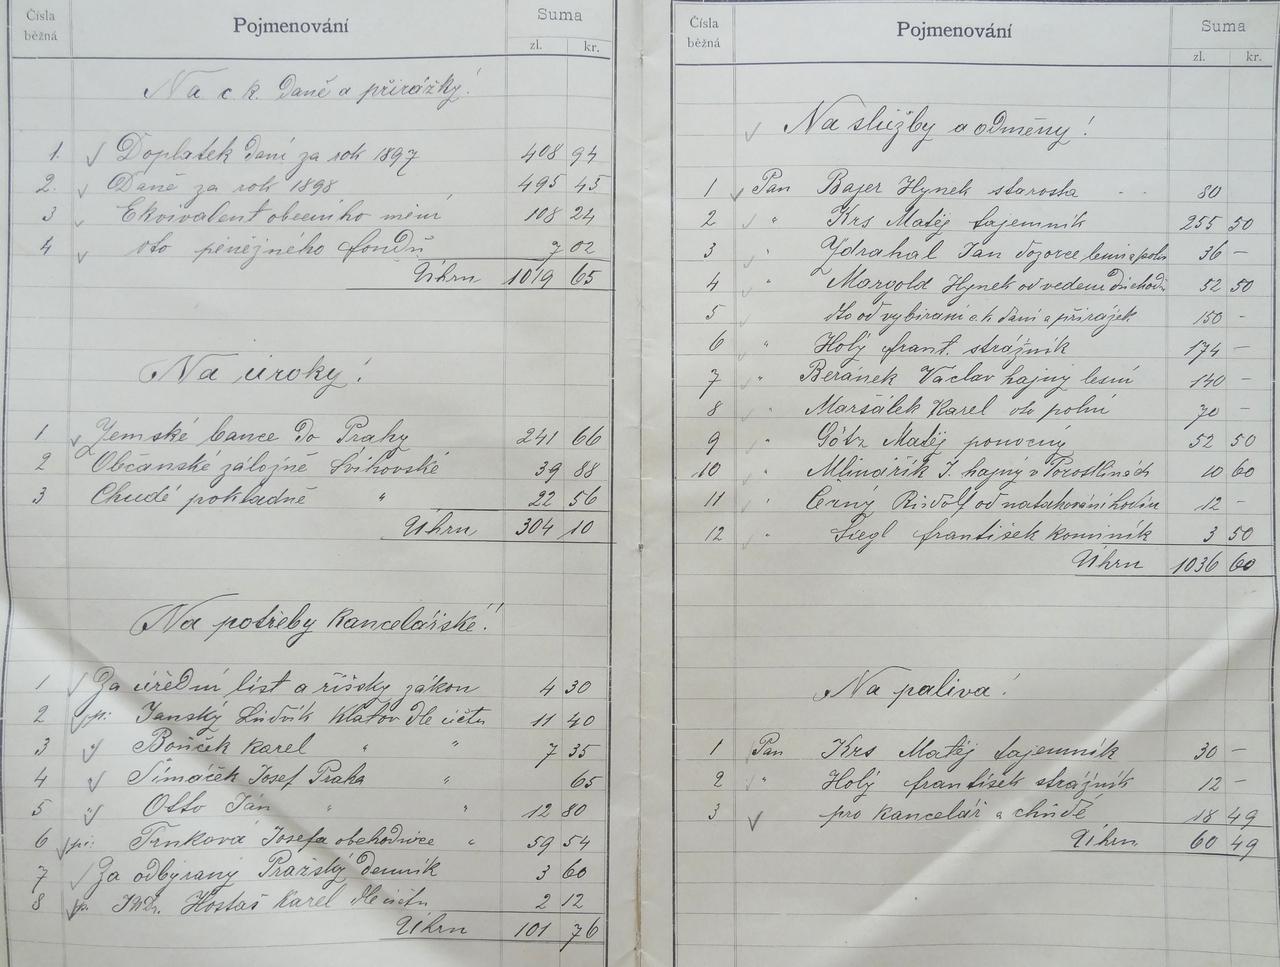 Čísla běžná Pojmenování Suma
zl. kr.
Na c. k. daně a přirážky!
1. Doplatek daní za rok 1897 408 94
2. Daně za rok 1898 495 45
3 Ekvivalent obecního mění 108 24
4 dto peněžného fondu 7 02
Úhrn 1019 65
Na úroky!
1. Zemské bance do Prahy 241 66
2 Občanské záložně Švihovské 39 88
3 Chudé pokladně " 22 56
Úhrn 304 10
Na potřeby kancelářské!
1 Za úřední list a říšský zákon 4 30
2 p: Janský Ludvík Klatov dle účtu 11 40
3 " Bouček Karel " " 7 35
4 " Šimáček Josef Praha " 65
5 " Otto Ján " " 12 80
6 pí: Trnková Josefa obchodnice " 59 54
7 Za odbýraný Pražský denník 3 60
8 p. Hostaš Karel dle účtu 2 12
Úhrn 101 76
Čísla běžná Pojmenování Suma
zl. kr.
Na služby a odměny!
1 Pan Bajer Hynek starosta 80
2 " Krs Matěj tajemník 255 50
3 " Zdrahal Jan dozorce lesní a polní 36 –
4 " Margold Hynek od vedení důchodů 52 50
5 dto od vybíraní c. k. daní a přirážek 150 –
6 " Holý frant. strážník 174 –
7 " Beránek Václav hajný lesní 140 –
8 " Maršálek Karel dto polní 70 –
9 " Götz Matěj ponocný 52 50
10 " Mlinářík J. hajný v 10 60
11 " Černý Rudolf od natahování hodin 12 –
12 " Siegl františek kominík 3 50
Úhrn 1036 60
Na paliva!
1 Pan Krs Matěj tajemník 30 –
2 " Holý františek strážník 12 –
3 pro kancelář a chudé 18 49
Úhrn 60 49